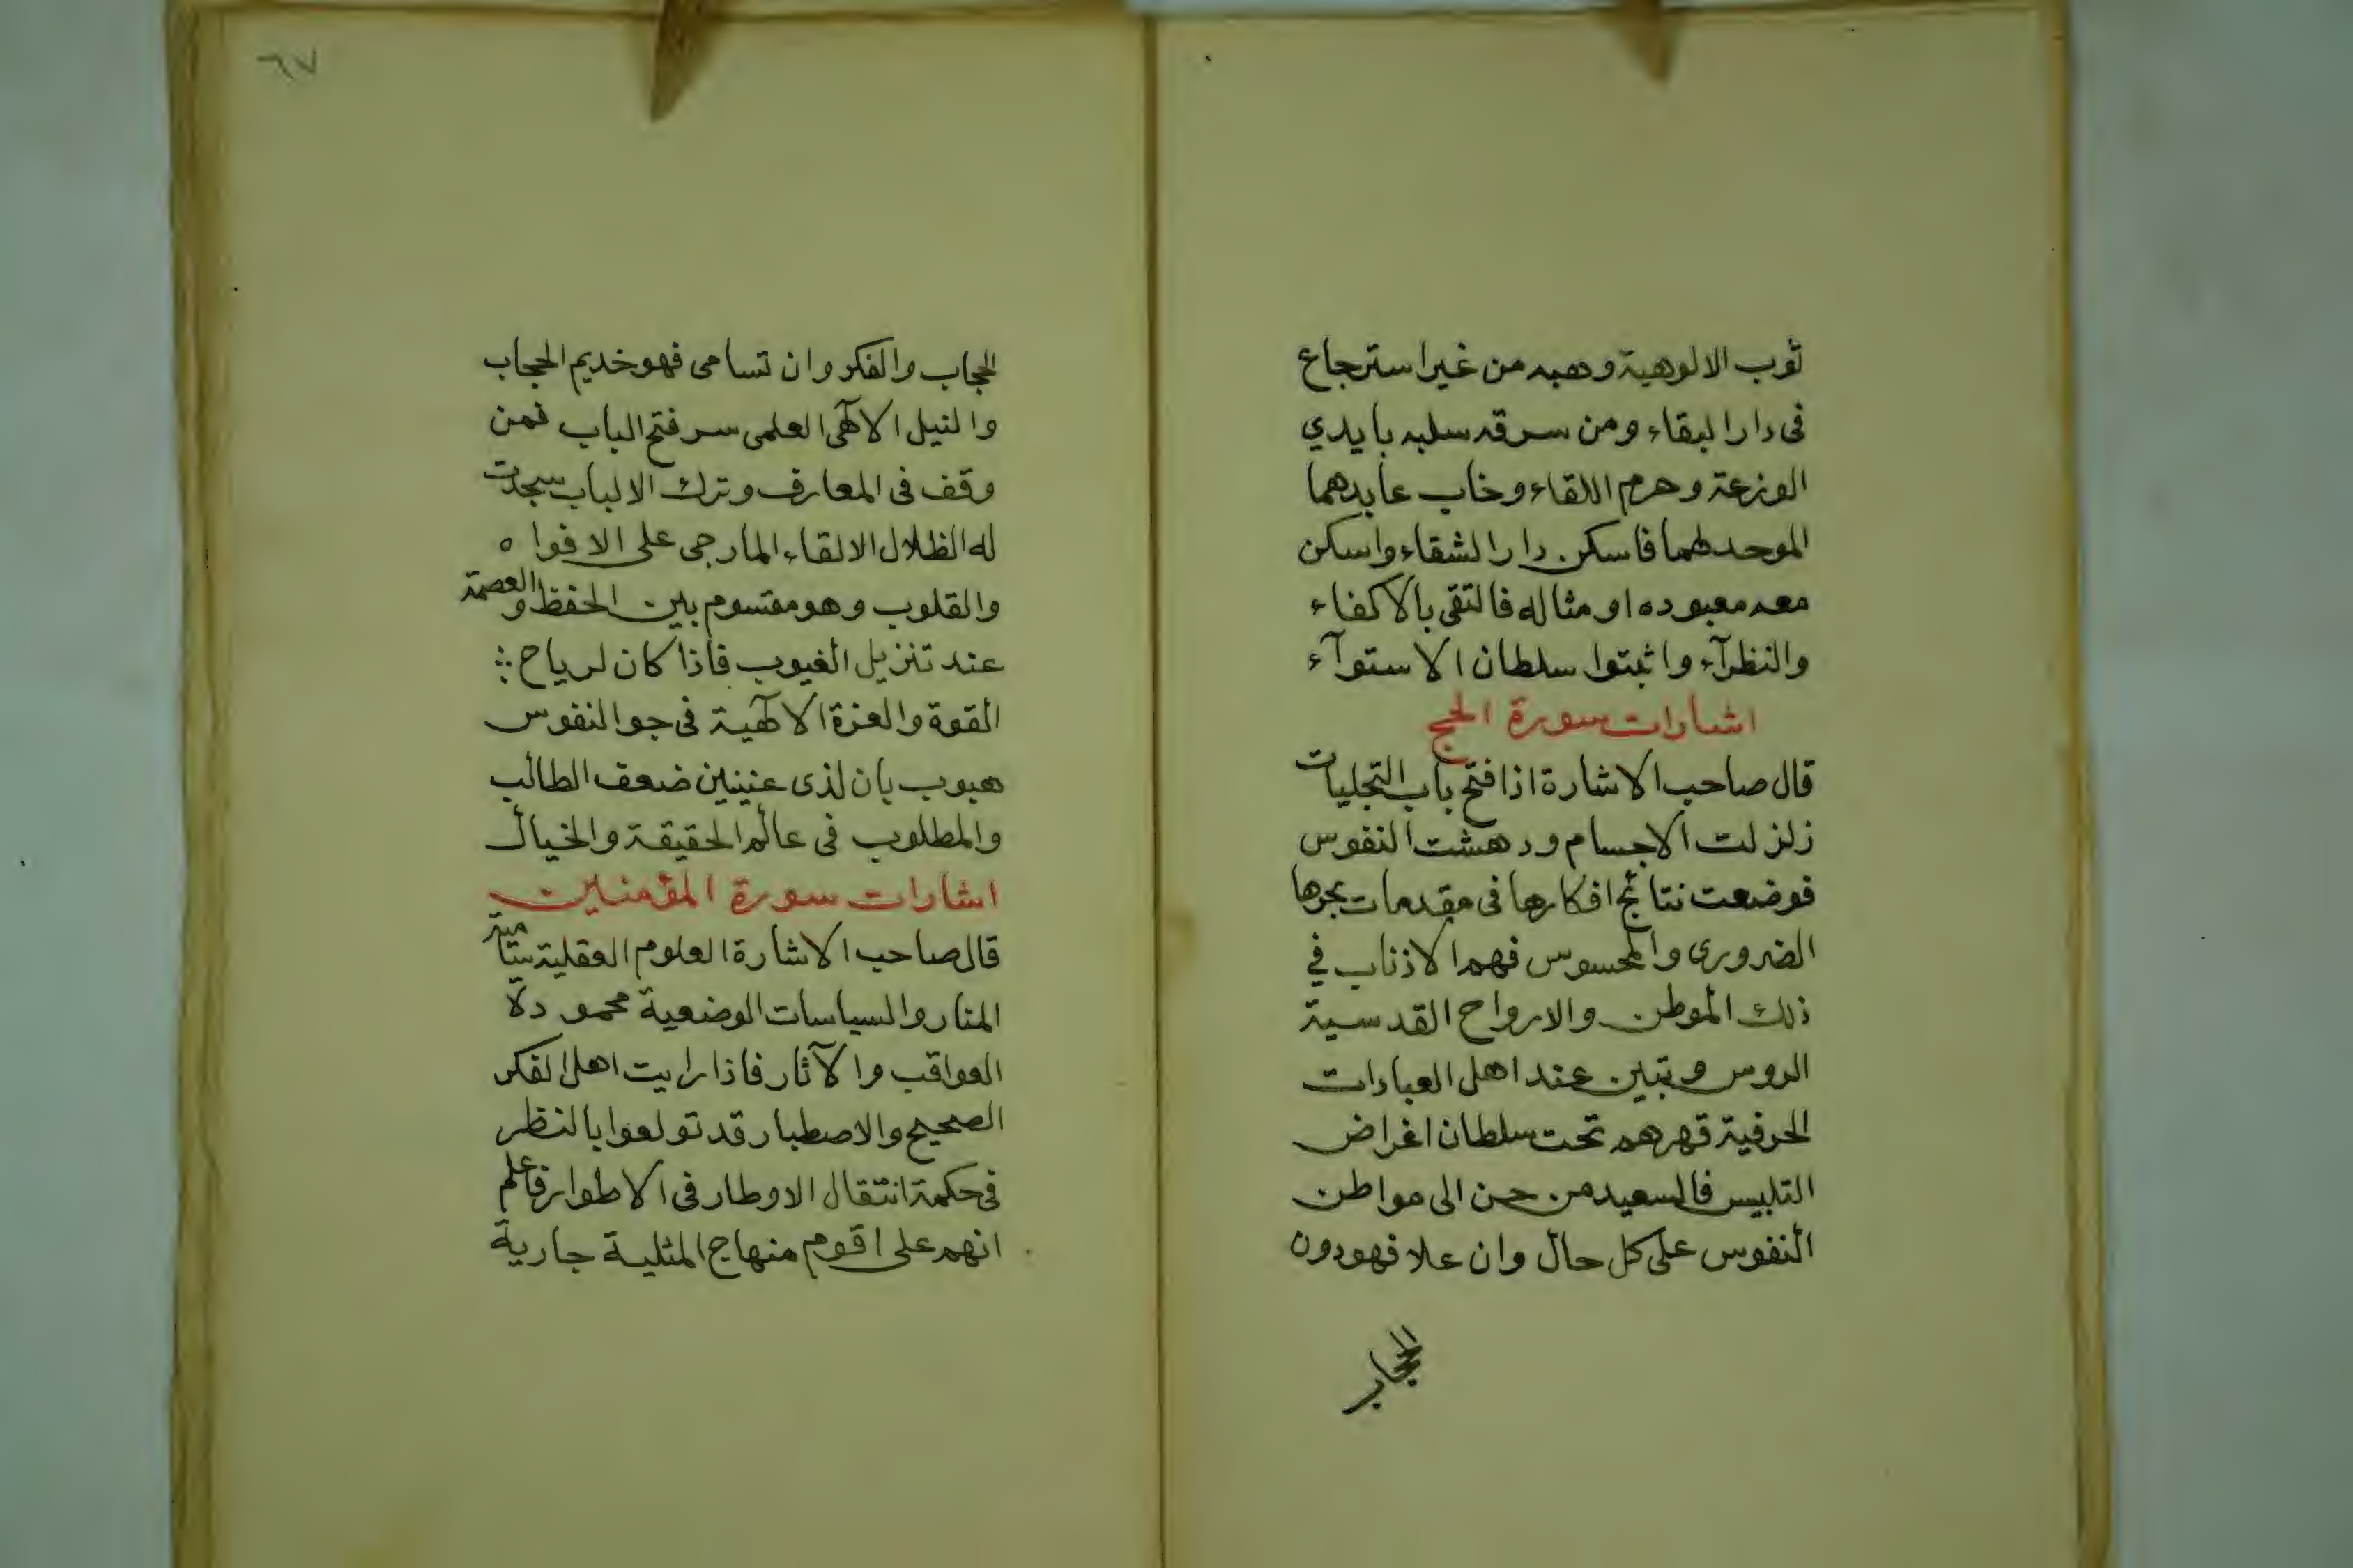 ثوب الالوهية وهبه من غير استرجاع
فى دار البقاء ومن سرقه سلبه بايدي
الوزعة وحرم اللقاء وخاب عابدهما
الموحد لهما فاسكن دار الشقاء واسكن
معه معبوده او مثاله فالتقى بالاكفاء
والنظرآء واثبتوا سلطان الاستوآء
اشارات سورة الحج
قال صاحب الاشارة اذا فتح باب التجليات
زلزلت الاجسام ودهشت النفوس
فوضعت نتائج افكارها فى مقدمات بحرها
الضرورى والمحسوس فهم الاذناب في
ذلك الموطن والارواح القدسية
الروس وتبين عند اهل العبارات
الحرفية قهرهم تحت سلطان اغراض
التلبيس فالسعيد من حن الى مواطن
النفوس على كل حال وان علا فهو دون
الحجاب
٦٧
الحجاب والفكر وان تسامى فهو خديم الحجاب
والنيل الالٓهى العلمى سر فتح الباب فمن
وقف فى المعارف وترك الالباب سجدت
له الظلال الالقاء المارجى على الافواه
والقلوب وهو مقسوم بين الحفظ والعصمة
عند تنزيل الغيوب فاذا كان لرياح
القوة والعزة الالٓهية فى جو النفوس
هبوب بان لذى عينين ضعف الطالب
والمطلوب فى عالم الحقيقة والخيال
اشارات سورة المؤمنين
قال صاحب الاشارة العلوم العقلية سامية
المنار والسياسات الوضعية محمودة
العواقب والآثار فاذا رايت اهل الفكر
الصحيح والاصطبار قد تولعوا بالنظر
فى حكمة انتقال الاوطار فى الاطوار فاعلم
انهم على اقوم منهاج المثلية جارية